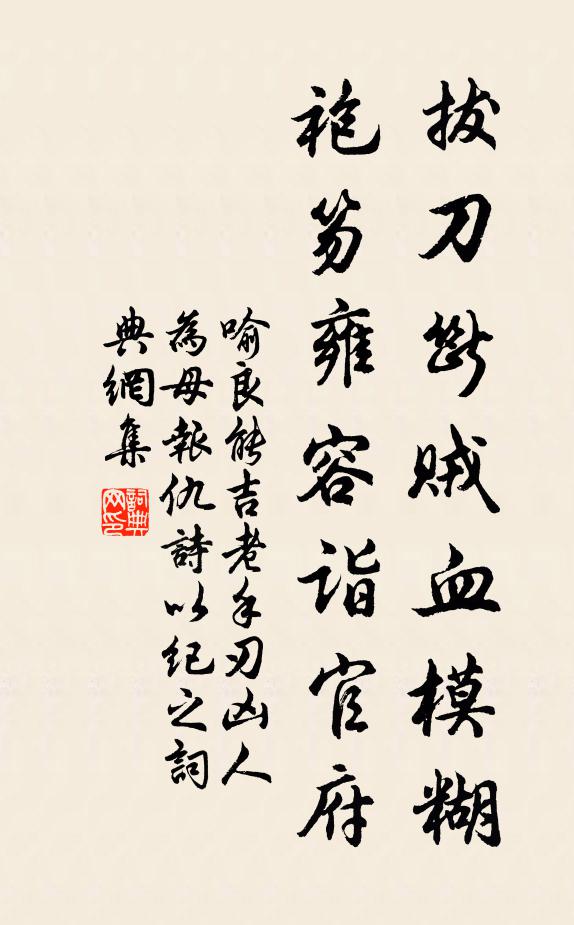 拔刀斷賊血模糊
袍笏雍容詣官府
喻良能吉老手刃凶人
為母報仇詩以紀之詞
典網集
詞典
网印